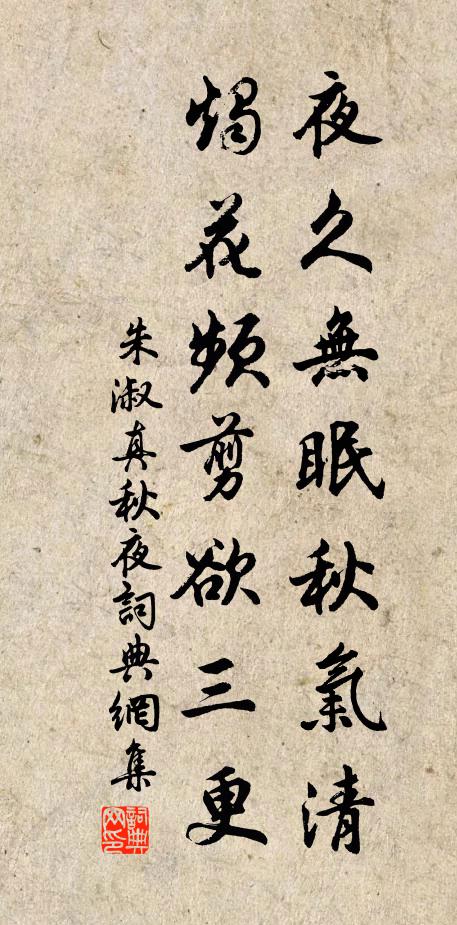 夜久無眠秋氣清
燭花頻剪欲三更
朱淑真秋夜詞典網集
詞典网印